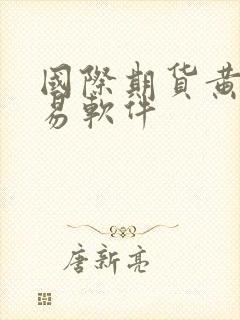 國際期货黄
易軟件
唐新亮